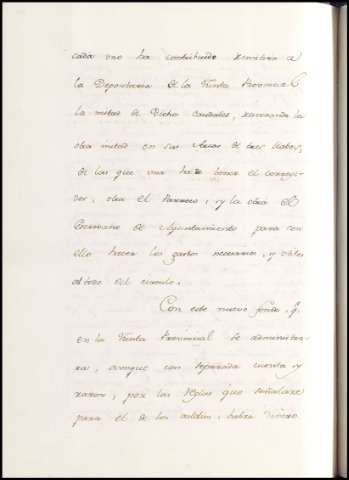 cada uno ha contribuido remitirá á
la Depositaria de la Junta Provincial
la mitad de dicho caudales, reservando la
otra mitad en sus Arcas de tres llaves,
de las que una ha de tener el corregi-
dor, otra el Parroco, y la otra el
Escribano de Ayuntamiento para con
ello hacer los gastos necesarios, y utiles
del circulo.
Con este nuevo fondo, q.
en la Junta Provincial se administra-
ra, aunque con separada cuenta y
razon, por las reglas que señalare
para el de los avldios, habra dinero